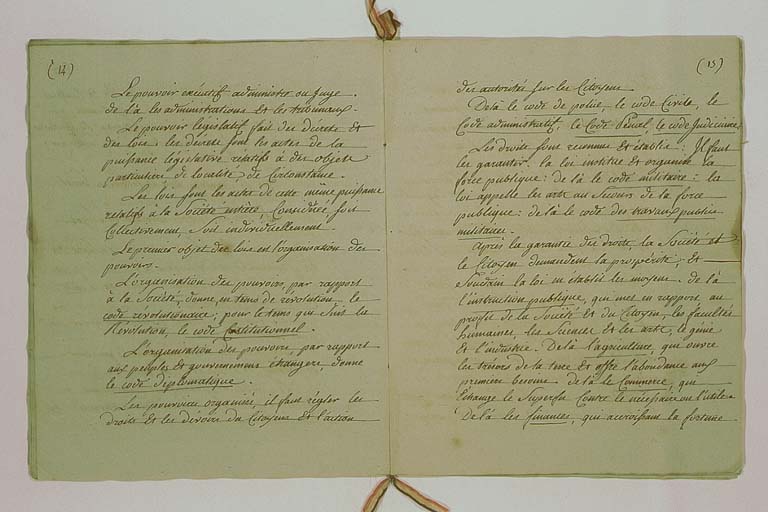 (14)
Le pouvoir exécutif administre ou juge.
de là les administrations et les tribunaux.
Le pouvoir législatif fait des décrets et
des lois : les décrets sont les actes de la
puissance législative relatifs à des objets
particuliers de localité, de circonstance.
Les lois sont les actes de cette même puissance
relatifs à la Société entière, Considérée soit
Collectivement, Soit individuellement.
Le premier objet des lois est l'organisation des
pouvoirs.
L'organisation des pouvoirs, par rapport
à la Société, donne, en tems de revolution, le
code révolutionnaire ; pour le tems qui suit la
Révolution, le code Constitutionnel.
L'organisation des pouvoirs, par rapport
aux peuples et gouvernemens étrangers, donne
le code diplomatique.
Les pouvoirs organisés, il faut régler les
droits et les devoirs du Citoyen et l'action
(15)
des autorités sur les Citoyens.
De là le code de police, le code Civile, le
Code administratif, le Code Pénal, le code Judiciaire
Les droits sont reconnus et établis : Il faut
les garantir. la loi institue et organise la
force publique : de là le code militaire : la
loi appelle les arts au Secours de la force
publique : de là le code des travaux publics
militaires.
Après la garantie des droits, la Société et
le Citoyen demandent la prospérité, et
Soudain la loi en établit les moyens. de là
l'instruction publique, qui met en rapport, au
profit de la Société et du Citoyen, les facultés
humaines, les Sciences et les arts, le génie
et l'industrie. De là l'agriculture, qui ouvre
les trésors de la terre et offre l'abondance aux
premiers besoins. de là le Commerce, qui
Echange le Superflu Contre le nécessaire ou l'utile.
De là les finances, qui accroissant la fortune